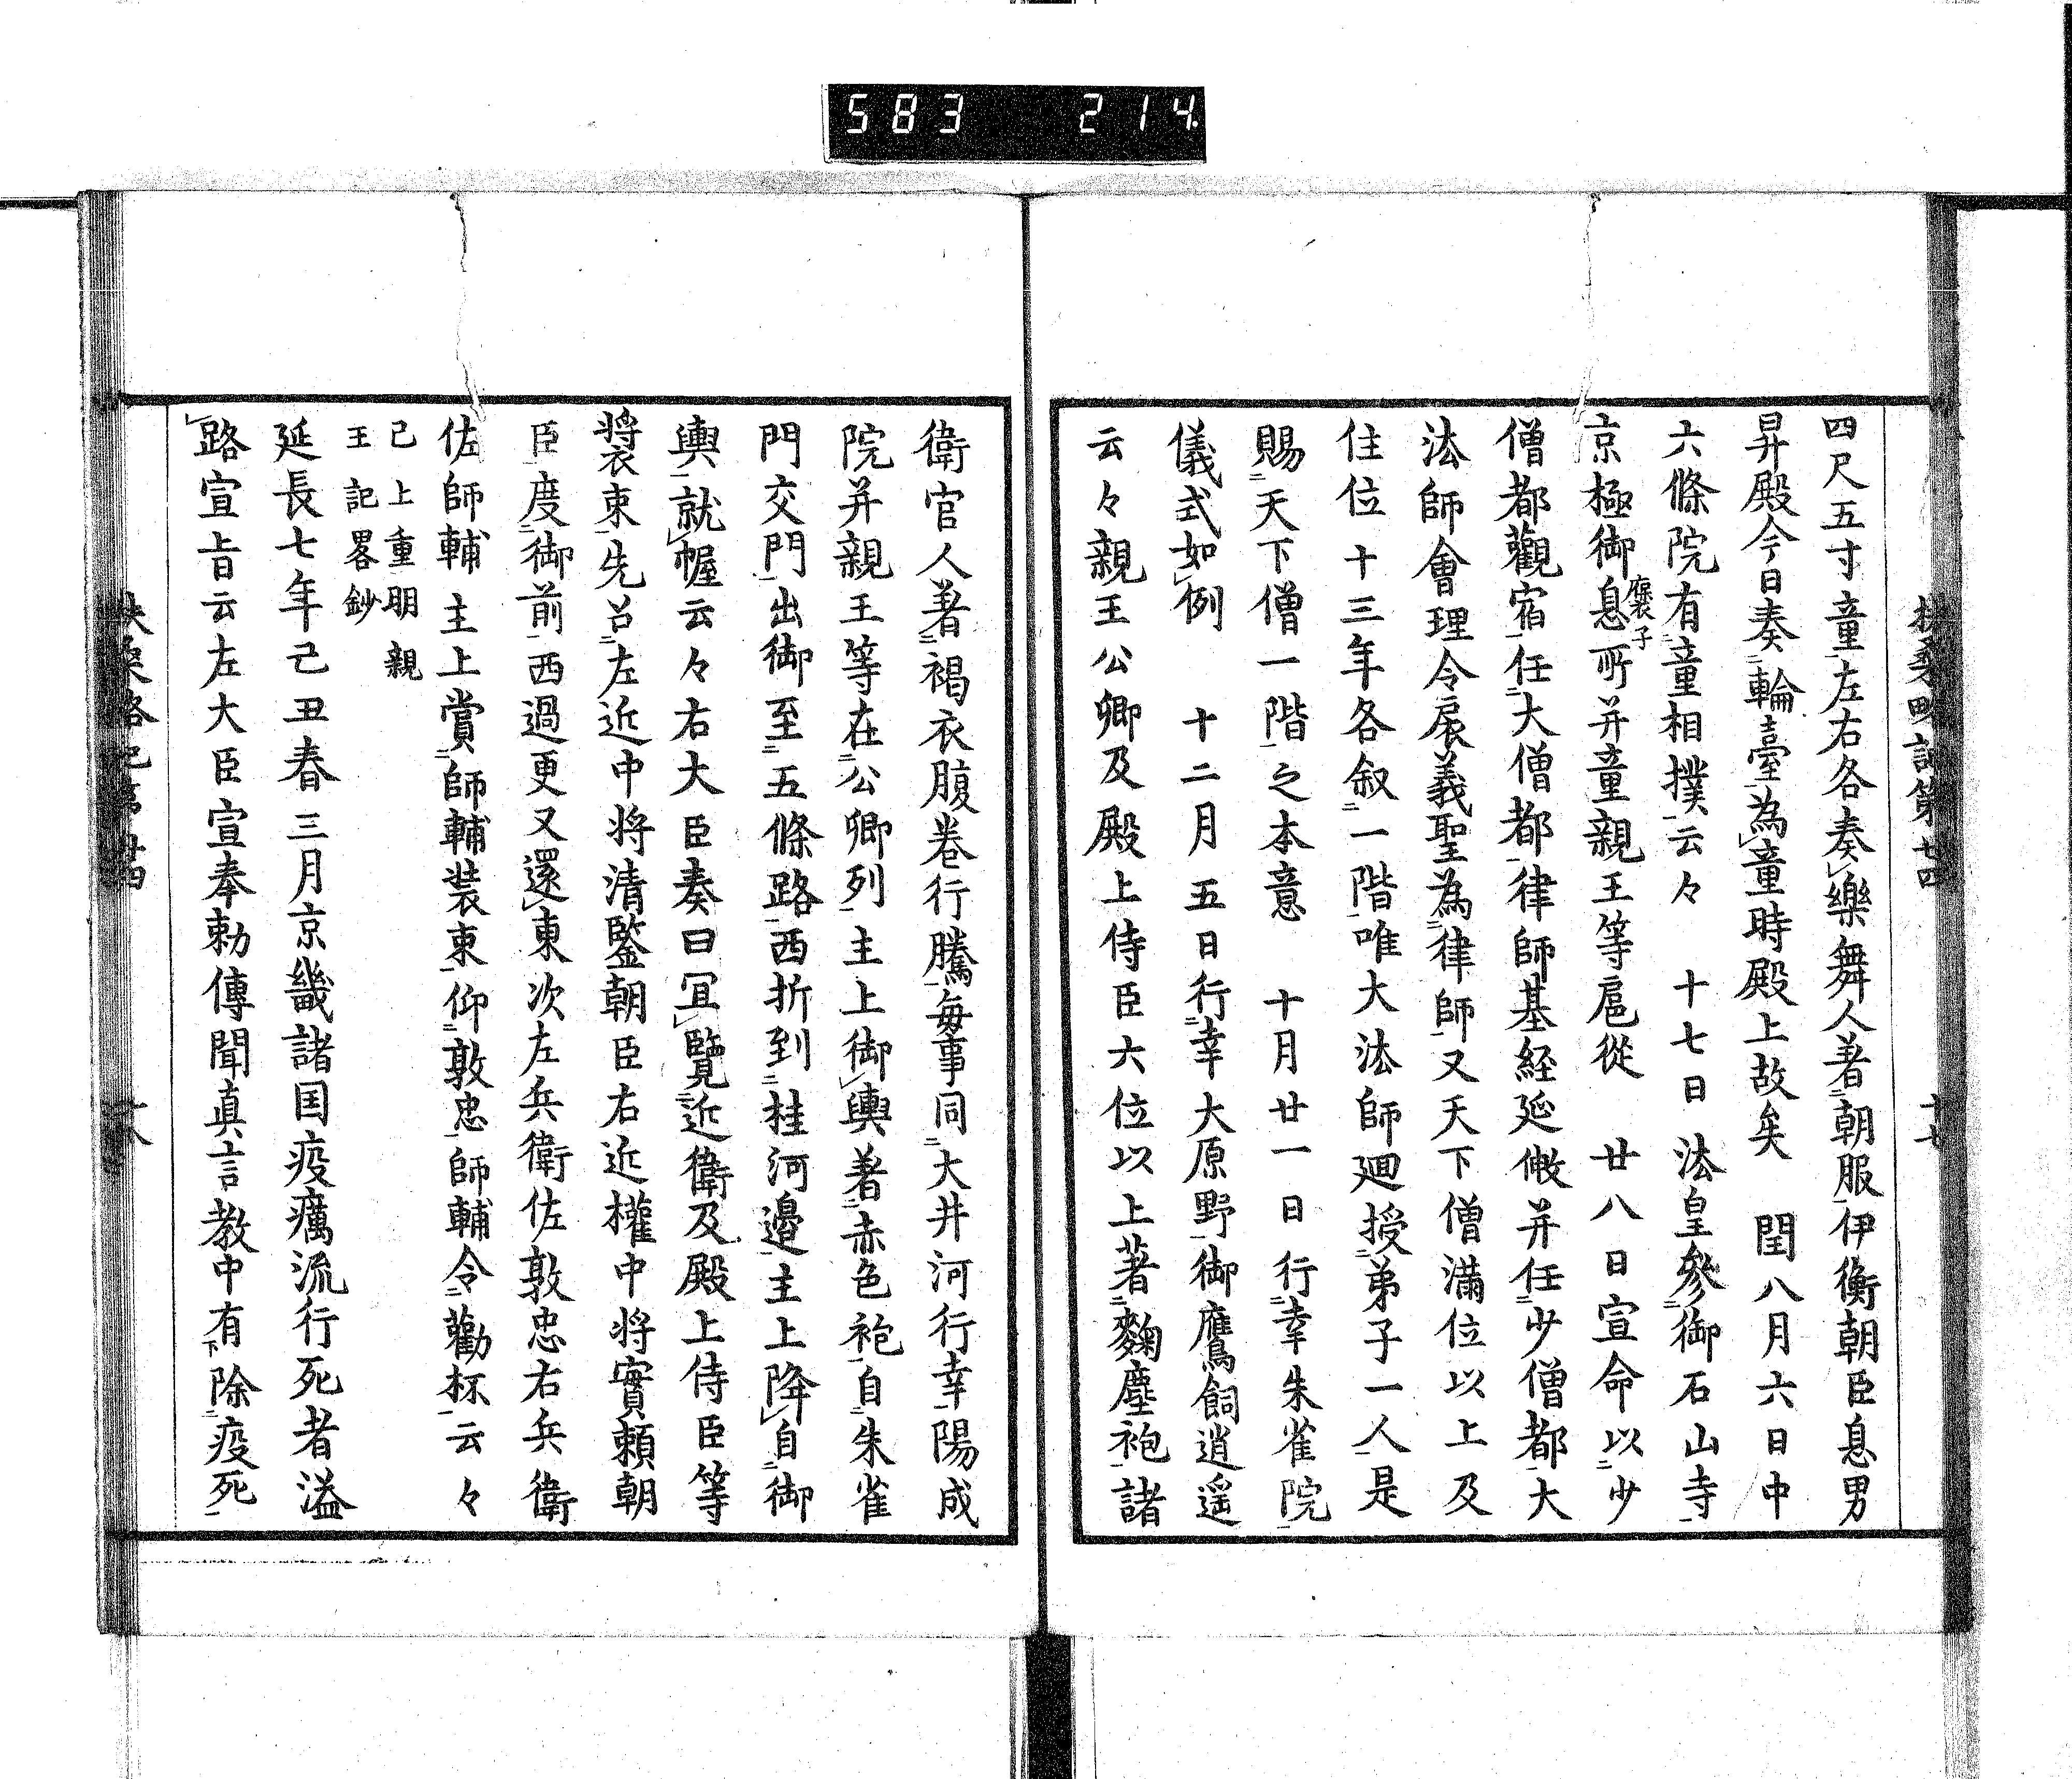 583 214
扶桑略記第廿四 十七
四尺五寸童左右各奏樂舞人著朝服伊衡朝臣息男
昇殿今日奏輪臺為童時殿上故矣 閏八月六日中
六條院有童相撲云々 十七日法皇參御石山寺
京極御息所并童親王等扈從 廿八日宣命以少
褒子
僧都觀宿任大僧都律師基経延𢿙并任少僧都大
法師會理令扆義聖為律師又天下僧滿位以上及
住位十三年各叙一階唯大法師廻授弟子一人是
賜天下僧一階之本意 十月廿一日行幸朱雀院
儀式如例 十二月五日行幸大原野御鷹飼逍遥
云々親王公卿及殿上侍臣六位以上著麴塵袍諸
衛官人著褐衣腹巻行騰毎事同大井河行幸陽成
院并親王等在公卿列主上御輿著赤色袍自朱雀
門交門出御至五條路西折到桂河邉主上降自御
輿就幄云々右大臣奏曰冝覽近衛及殿上侍臣等
装束先召左近中将清鑒朝臣右近權中将實頼朝
臣度御前西過更又還東次左兵衛佐敦忠右兵衛
佐師輔主上賞師輔装束仰敦忠師輔令勸杯云々
已上重明親
王記畧鈔
延長七年己丑春三月京畿諸国疫癘流行死者溢
路宣旨云左大臣宣奉勅傳聞真言教中有除疫死
扶桑略記第廿四 十八